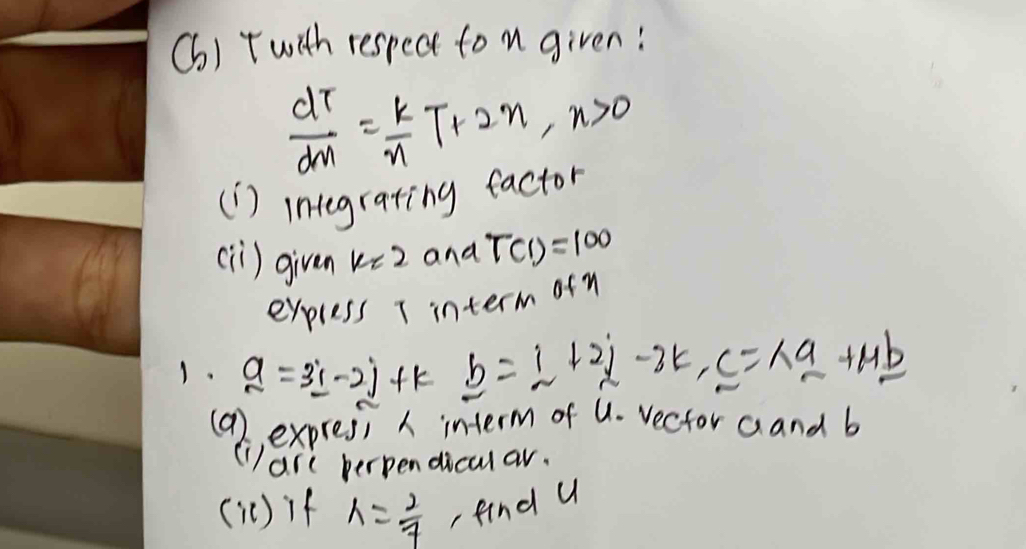 (b) T with respect to x given:
dT/dx = k/x T + 2x, x>0
(i) integrating factor
(ii) given k=2 and T(1)=100
express T interm of x
1. a = 3i - 2j + k b = i + 2j - 3k, c = λa + μb
(a), express λ interm of u. vector a and b
(i) are perpendicular.
(ii) if λ = 2/7, find u